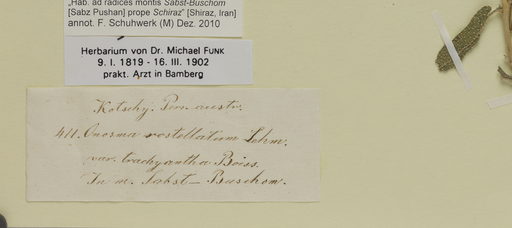 „Hab. ad radices montis Sabst-Buschom
[Sabz Pushan] prope Schiraz" [Shiraz, Iran]
annot. F. Schuhwerk (M) Dez. 2010
Herbarium von Dr. Michael FUNK
9. I. 1819 - 16. III. 1902
prakt. Arzt in Bamberg
Kotschy. Pers. austr.
411. Onosma rostellatum Lehm.
var. trachyantha Boiss.
In m. Sabst-Buschom.